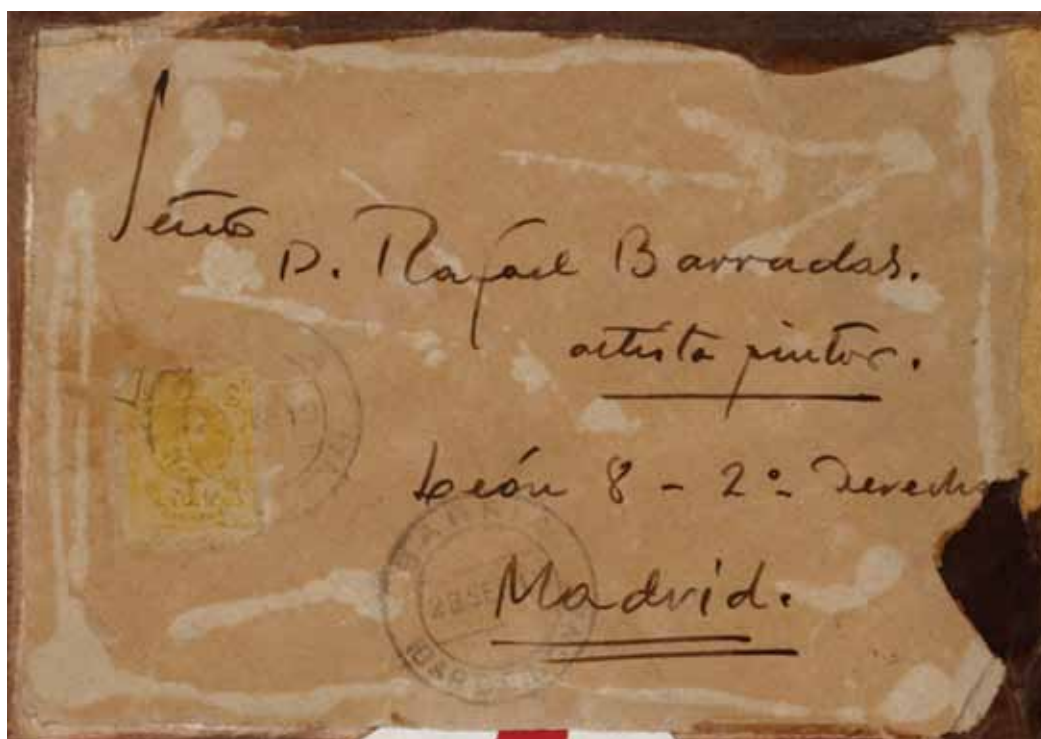 Señor
D. Rafael Barradas.
artista pintor.
León 8 - 2º Derecha
Madrid.